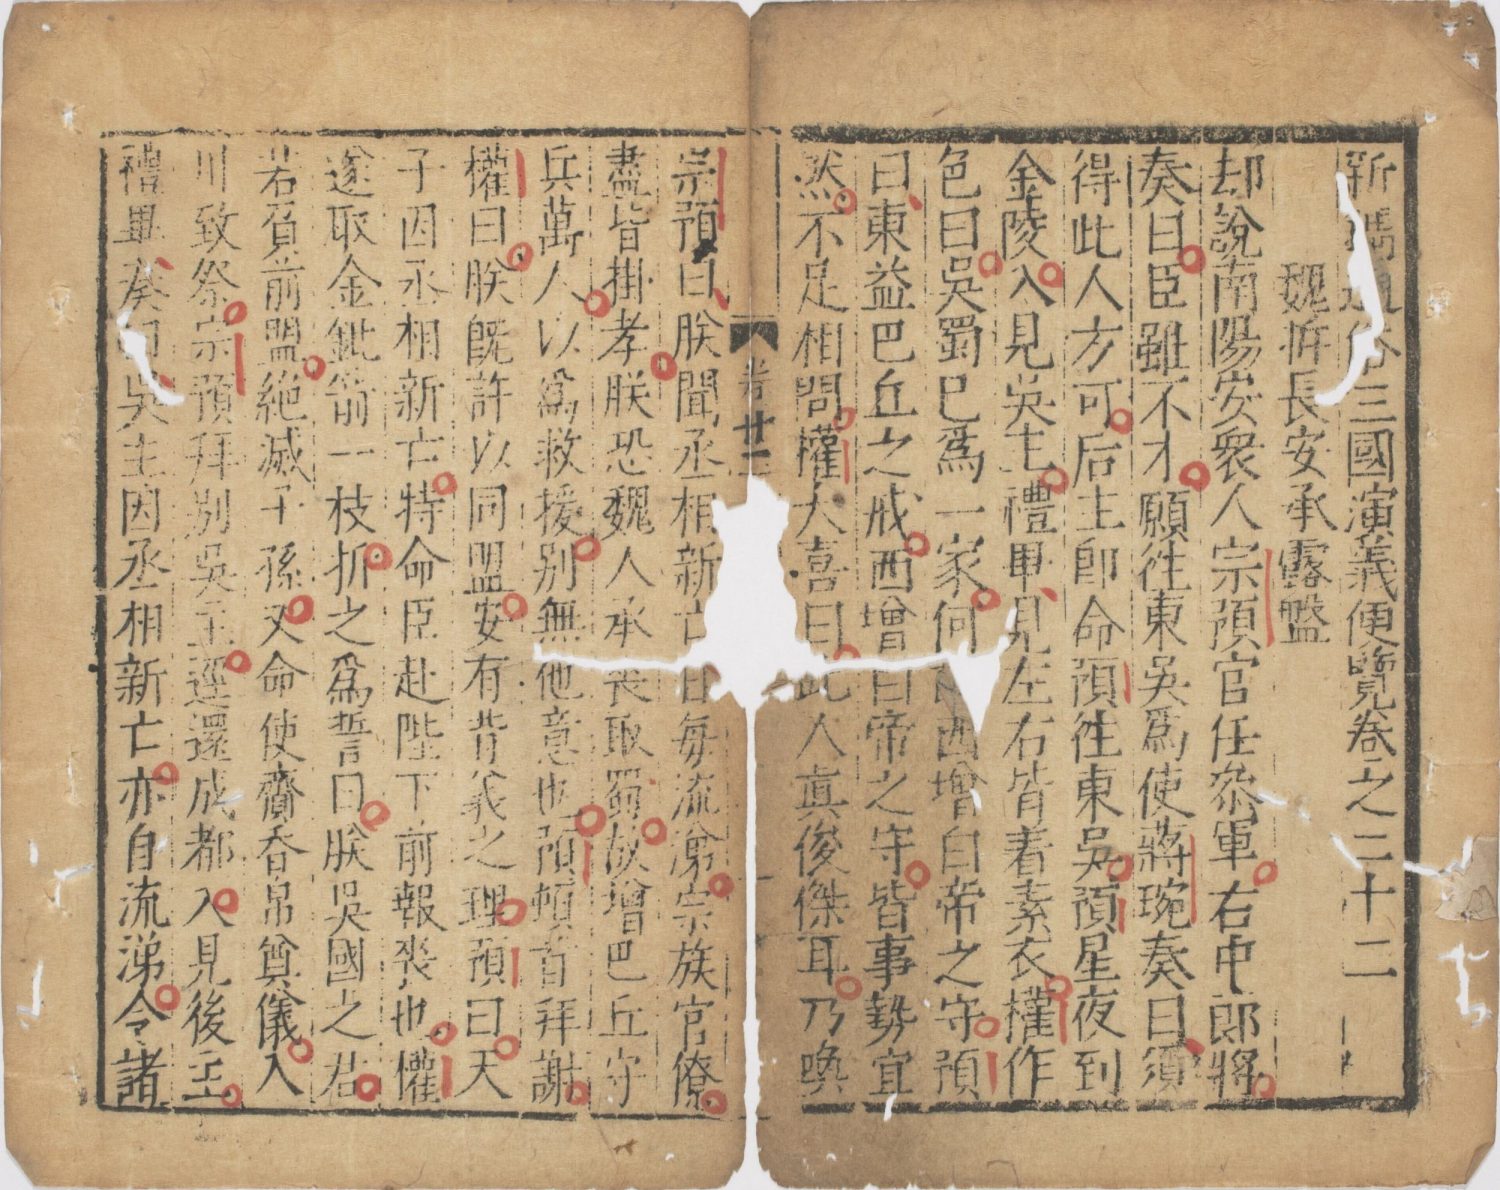 新鐫通俗三國演義便覽卷之二十二
魏拆長安承露盤
却說南陽安衆人宗預官任叅軍右中郎將
奏曰臣雖不才願往東吳爲使蔣琬奏曰須
得此人方可后主即命預往東吳預星夜到
金陵入見吳主禮畢見左右皆着素衣權作
色曰吳蜀已爲一家何 西增白帝之守預
曰東益巴丘之戒西增白帝之守皆事勢宜
然不足相問權大喜曰此人真俊傑耳乃喚
卷廿二
宗預曰朕聞丞相新亡 日每流涕宗族官僚
盡皆掛孝朕恐魏人承喪取蜀故增巴丘守
兵萬人以爲救援别無他意也預頓首拜謝
權曰朕旣許以同盟安有背義之理預曰天
子因丞相新亡特命臣赴陛下前報丧也權
遂取金鈚箭一枝折之爲誓曰朕吳國之君
若負前盟絶滅子孫又命使齎香吊奠儀入
川致祭宗預拜别吳主逕還成都入見後主
禮畢奏 吳主因丞相新亡亦自流涕令諸